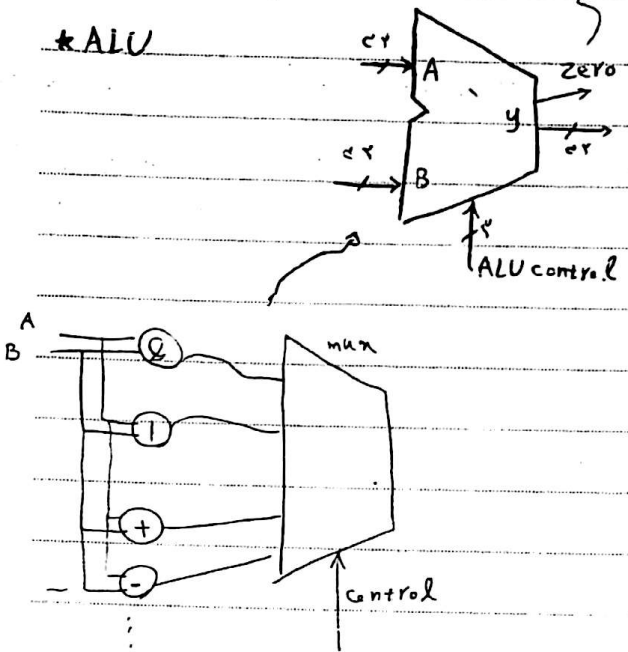 * ALU
۳۲
A
zero
y
۳۲
۳۲
B
ALU control
A
B
&
mux
|
+
-
control